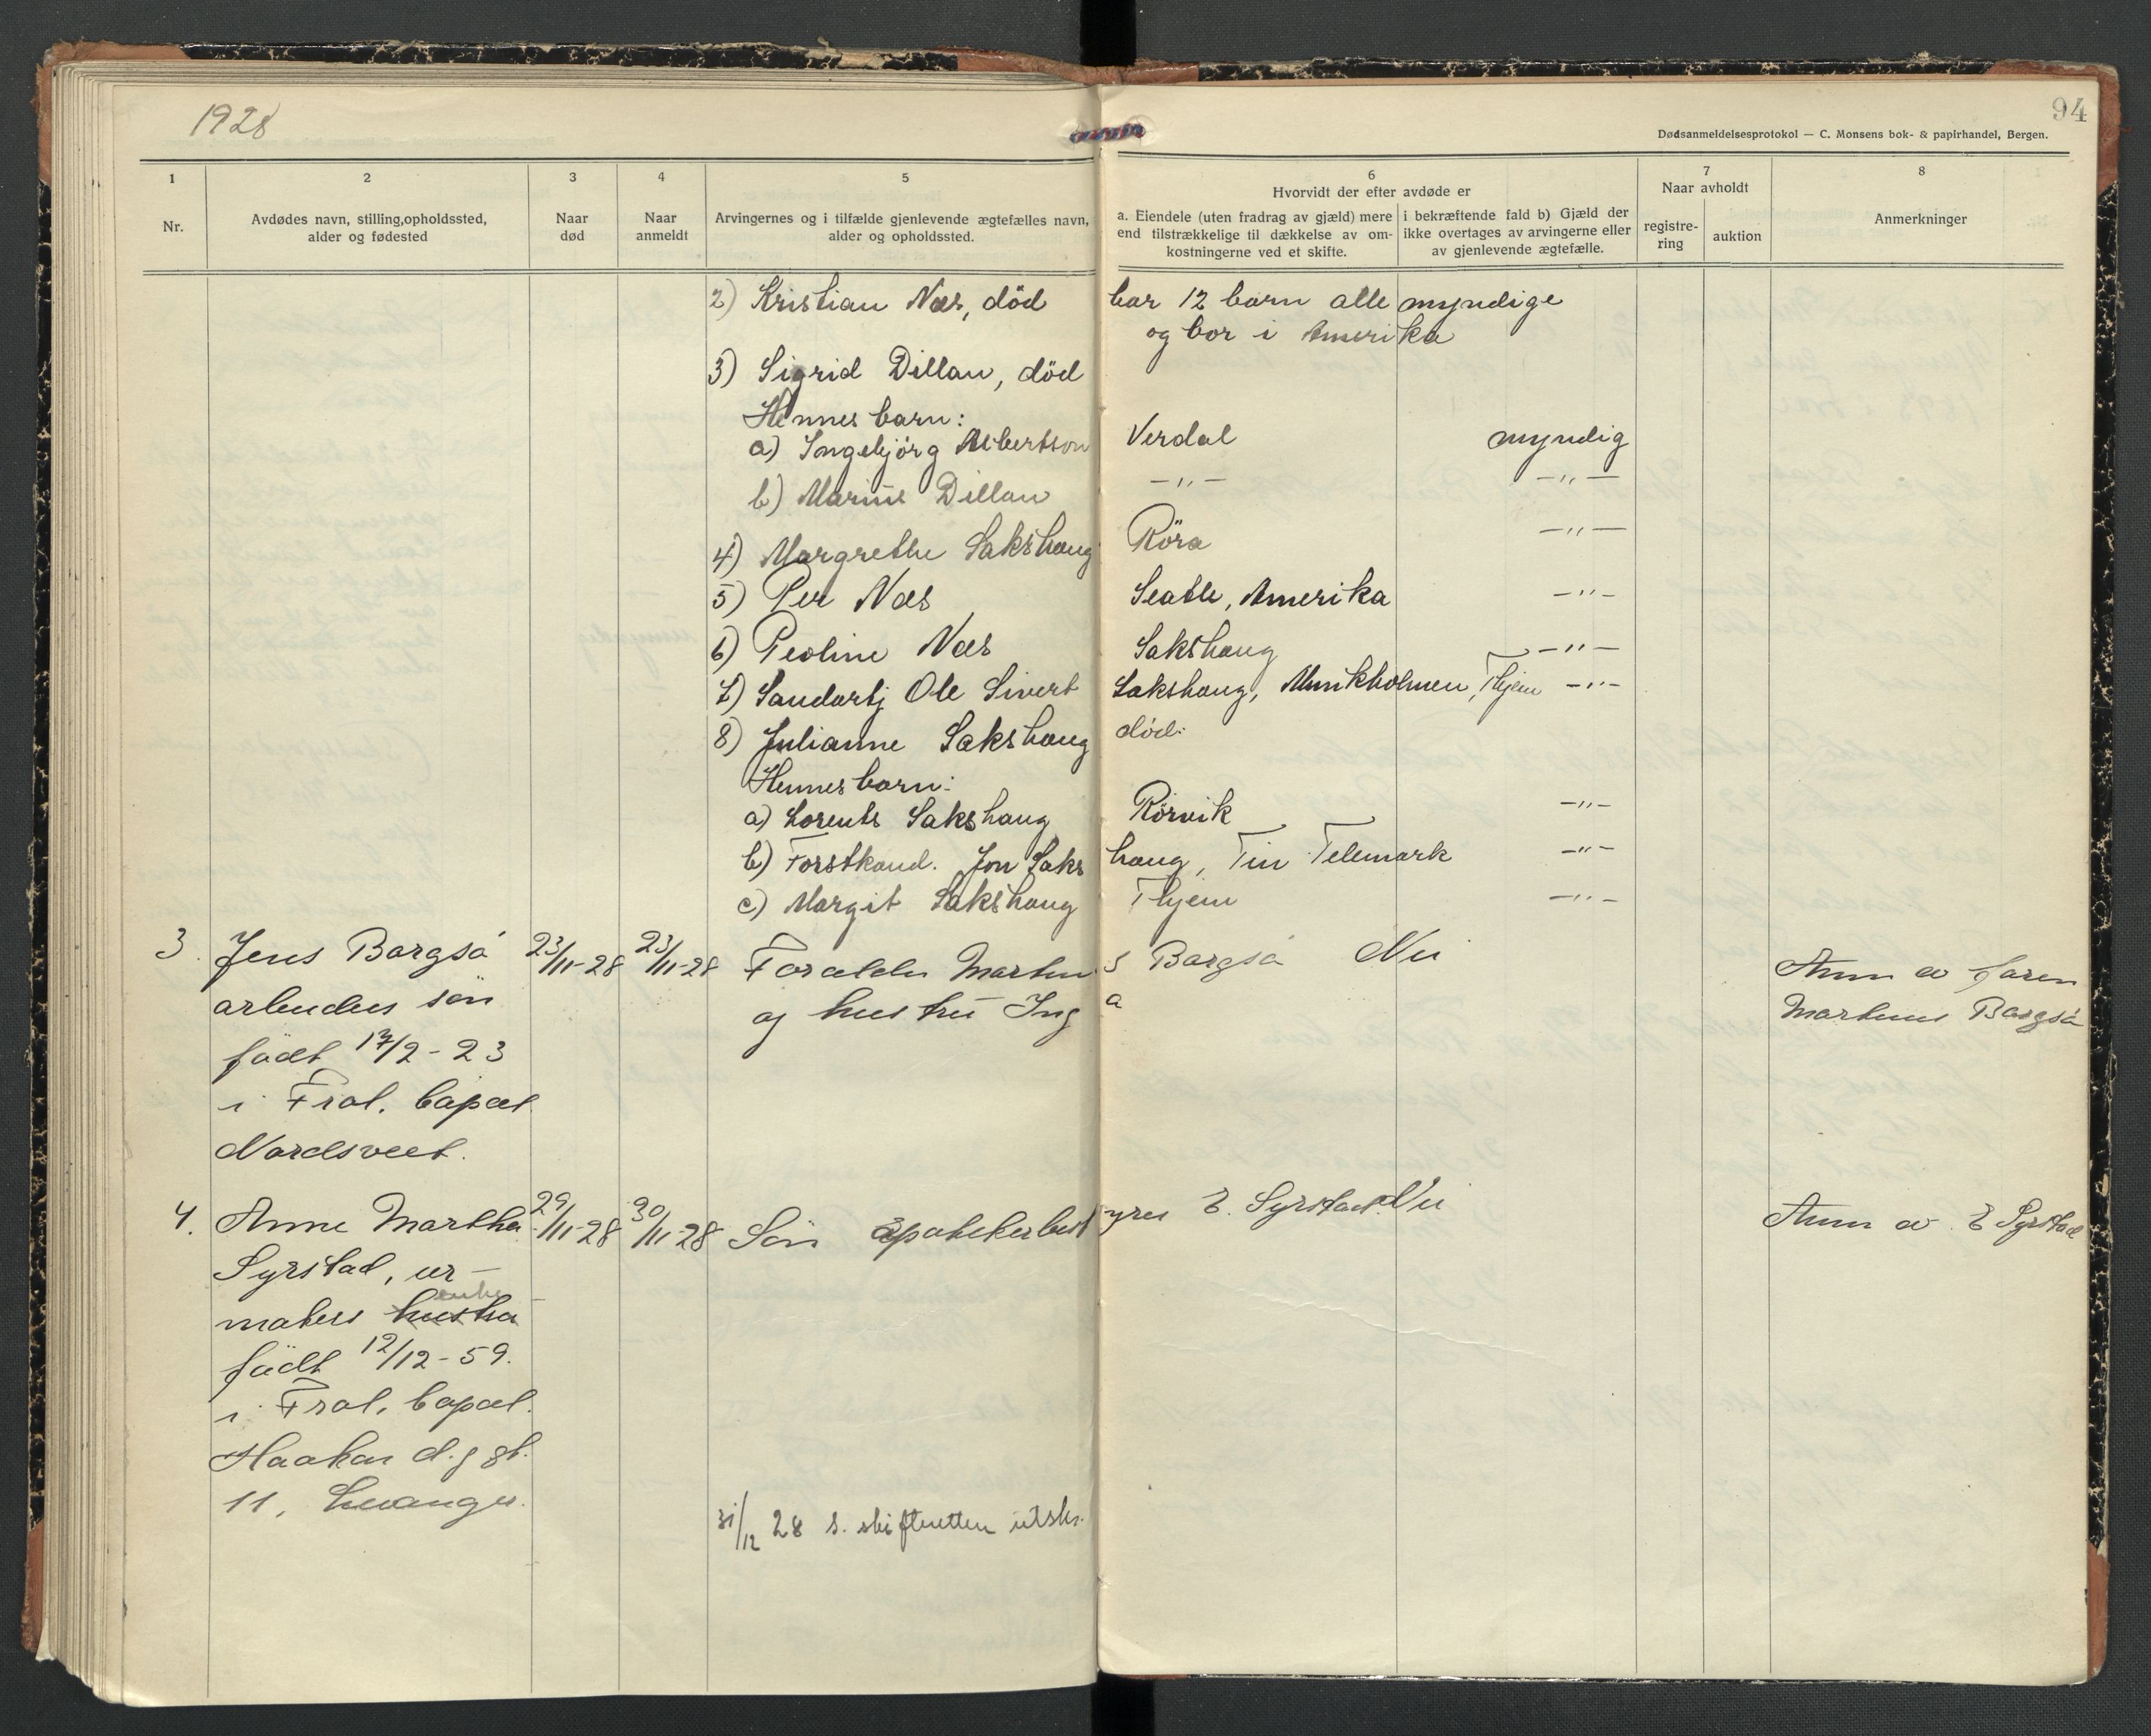 1928
94
Dødsanmeldelsesprotokol — C. Monsens bok- & papirhandel, Bergen.
1
Nr.
2
Avdødes navn, stilling, opholdssted,
alder og fødested
3
Naar
død
4
Naar
anmeldt
5
Arvingernes og i tilfælde gjenlevende ægtefælles navn,
alder og opholdssted.
6
Hvorvidt der efter avdøde er
a. Eiendele (uten fradrag av gjæld) mere
end tilstrækkelige til dækkelse av om-
kostningerne ved et skifte.
i bekræftende fald b) Gjæld der
ikke overtages av arvingerne eller
av gjenlevende ægtefælle.
7
Naar avholdt
registre-
ring
auktion
8
Anmerkninger
2) Kristian Næs, död har 12 barn alle myndige
og bor i Amerika
3) Sigrid Dillan, död
Hennes barn:
a) Ingebjörg Albertson Verdal myndig
b) Marius Dillan —„— —„—
4) Margrethe Sakshaug Röra —„—
5) Per Næs Seatle, Amerika —„—
6) Peoline Næs Sakshaug —„—
7) Sandartj Ole Sivert Sakshaug, Munkholmen, Thjem —„—
8) Julianne Sakshaug död.
Hennes barn:
a) Lorents Sakshaug Rörvik —„—
b) Forstkand. Jon Sakshaug, Tin Telemark —„—
c) Margit Sakshaug Thjem —„—
3. Jens Bargsö 23/11-28 23/11-28 Forældre Martinus Bargsö Nei Anm av faren
arbeiders sön og hustru Inga Martinus Bargsö
födt 17/2-23
i Frol. bopæl
Nordsveet.
4. Anne Martha 29/11-28 30/11-28 Sön apotekerbestyrer E. Syrstad. Nei Anm av E Syrstad
Syrstad, ur-
enke
makers hustru
födt 12/12-59.
i Frol, bopæl.
Haakon d. 7 gt.
11, Levanger.
31/12 28 s. skifteretten utskr.